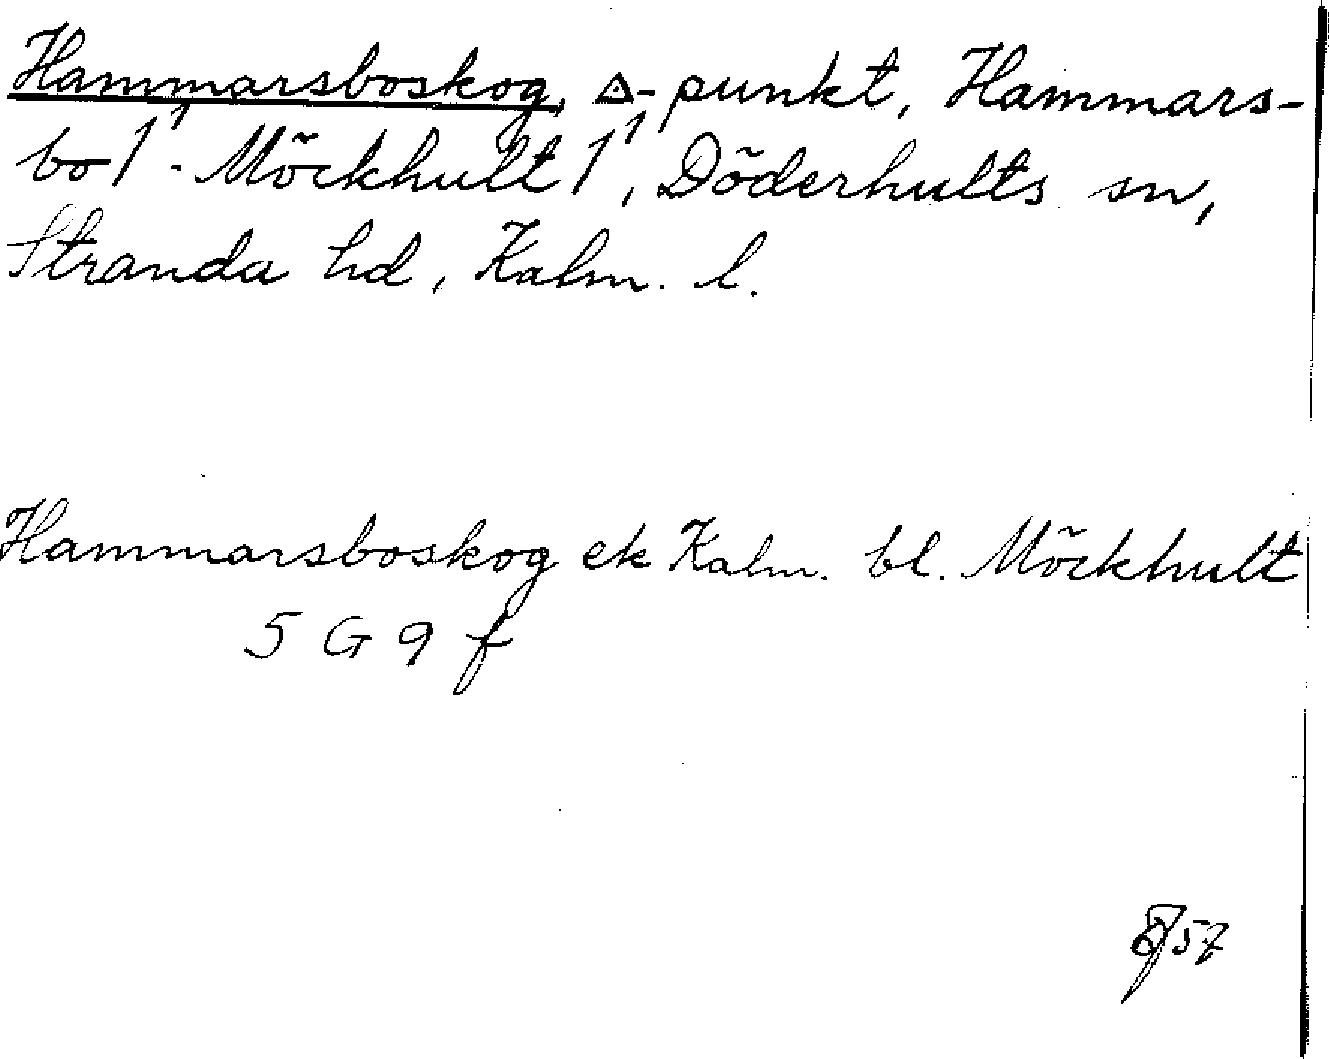 Hammarsboskog, △-punkt, Hammars-
bo 1¹ - Möckhult 1¹, Döderhults sn,
Stranda hd, Kalm. l.
Hammarsboskog ek Kalm. bl. Möckhult
5 G 9 f
57